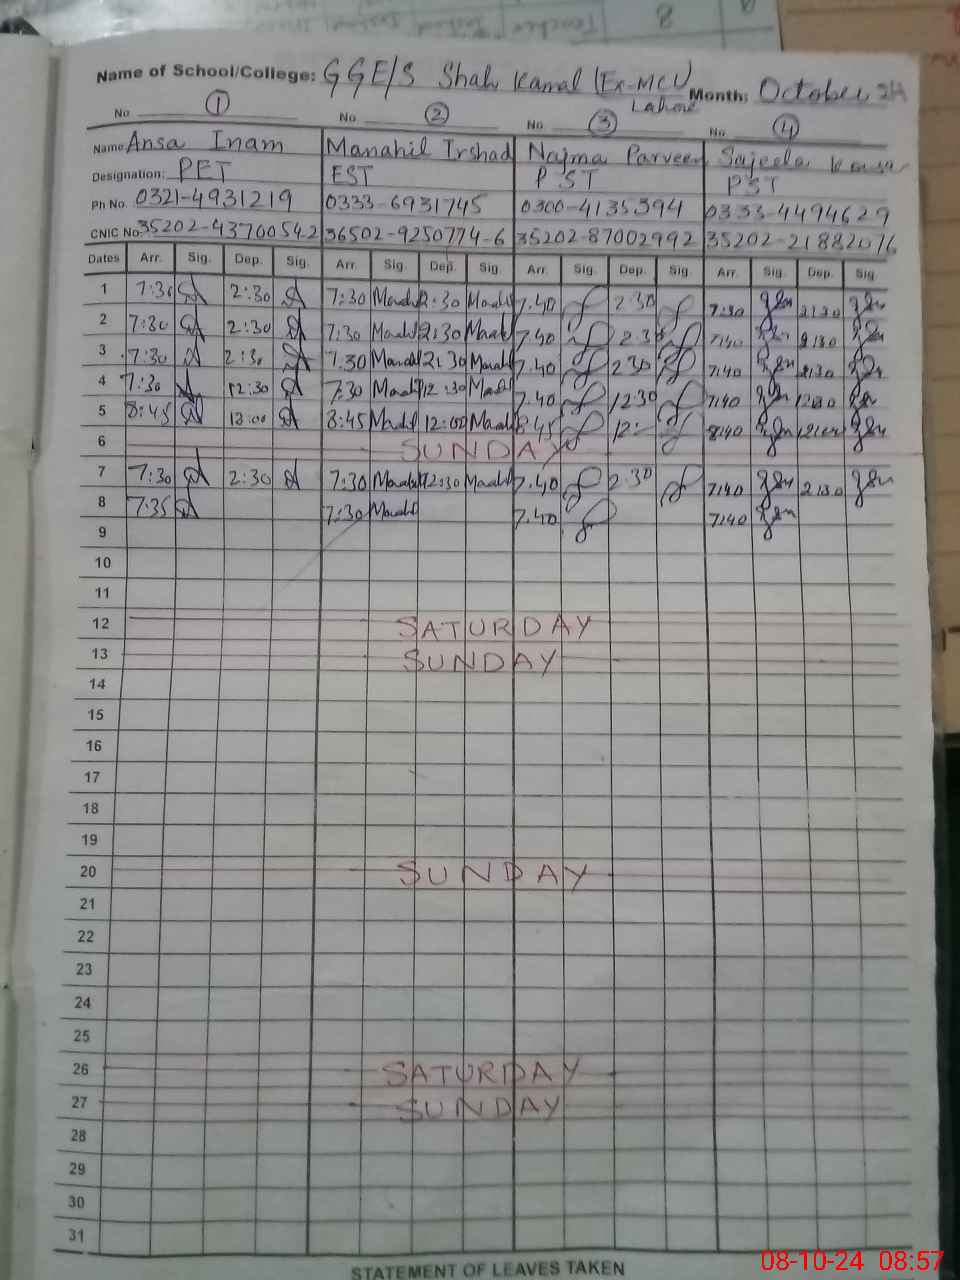 Teacher
8
Name of School/College: GGE/S Shah Kamal (Ex-MCL) Month: October 24
Lahore
No ① No ② No ③ No ④
Name Ansa Inam Manahil Irshad Najma Parveen Sajeela
Designation: PET EST PST PST
Ph No. 0321-4931219 0333-6931745 0300-4135394 0333-4494629
CNIC No: 35202-43700542 36502-9250774-6 35202-87002992 35202-21882076
Dates Arr. Sig. Dep. Sig. Arr. Sig. Dep. Sig. Arr. Sig. Dep. Sig. Arr. Sig. Dep. Sig
1 7:30 2:30 7:30 2:30 7.40 2:30 7:30 2:30
2 7:30 2:30 7:30 2:30 7.40 2:30 7:40 2:30
3 7:30 2:30 7:30 2:30 7.40 2:30 7:40 2:30
4 7:30 12:30 7:30 12:30 7.40 12:30 7:40 12:30
5 8:45 12:00 8:45 12:00 8:45 12:- 8:40 12:00
6 SUNDAY
7 7:30 2:30 7:30 2:30 7.40 2:30 7:40 2:30
8 7:35 7:30 7.40 7:40
9
10
11
12 SATURDAY
13 SUNDAY
14
15
16
17
18
19
20 SUNDAY
21
22
23
24
25
26 SATURDAY
27 SUNDAY
28
29
30
31
STATEMENT OF LEAVES TAKEN
08-10-24 08:57